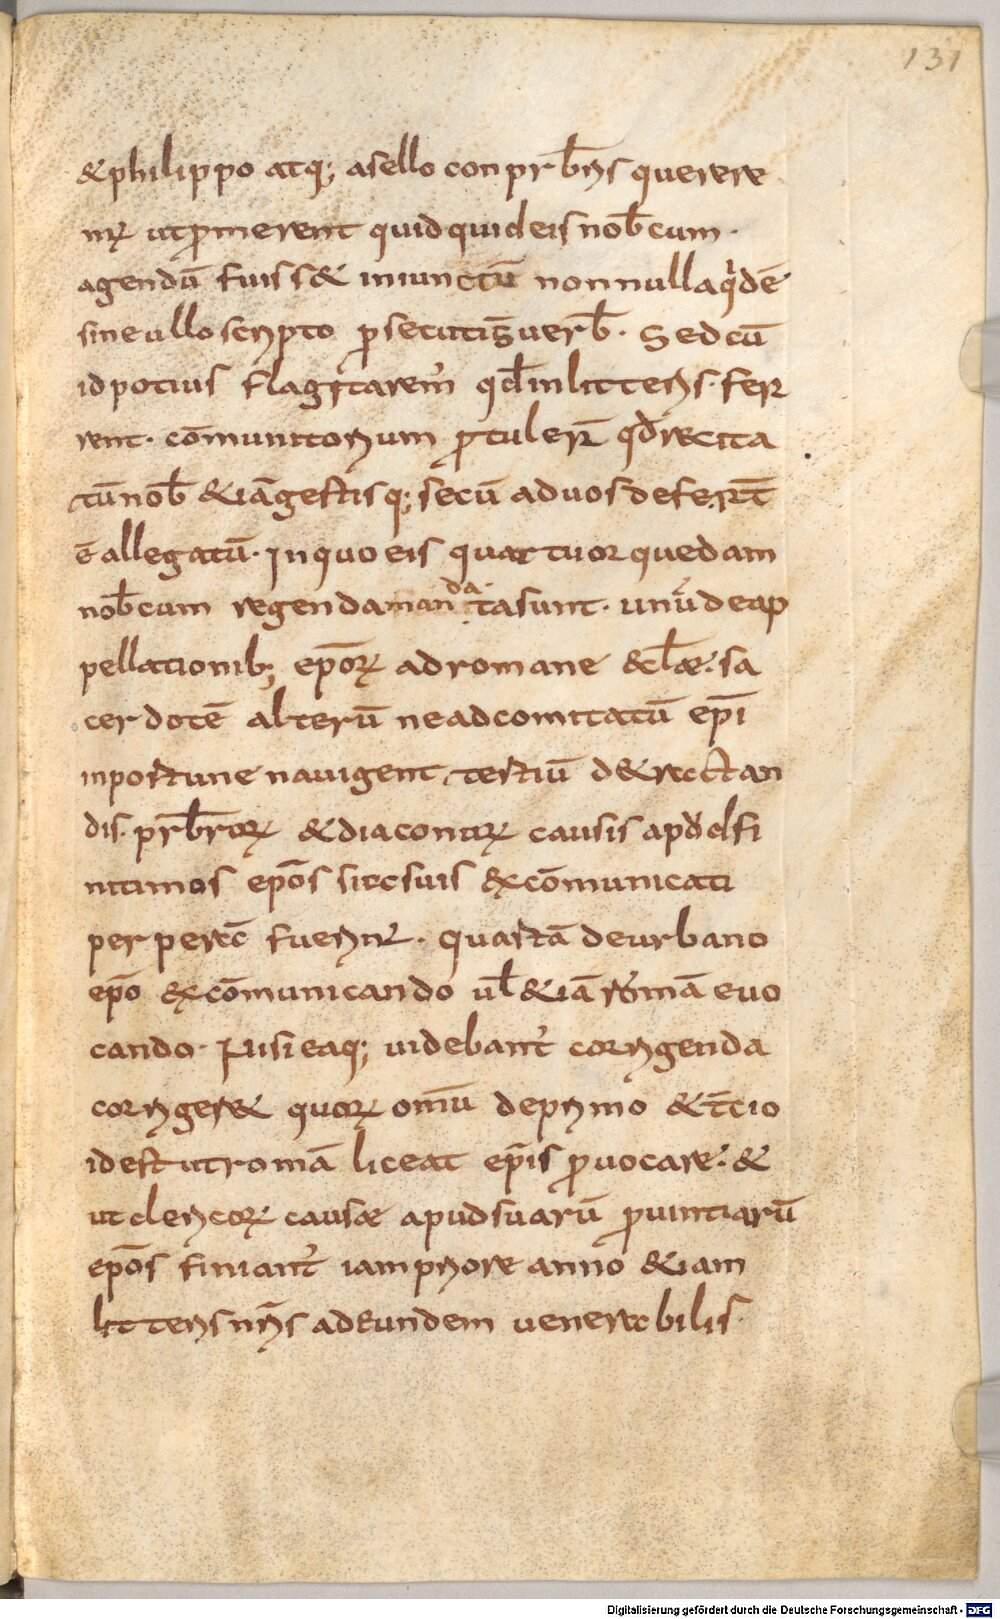 131
&philippo atq; asello conprb̄ris querere
mur ut p̄merent quid quid eis nob̄cum·
agendū fuiss& iniunctū nonnulla qͥdē
sine ullo scripto p̄secuti s̄ uerb̄· Sed cū
id potius flagitarem̉ qd̄ in litteris· fer
rent· cōmunitorium p̄tuler̄ qd̄ recita
tū nob̄ &iā gestisq; secū ad uos defer̄t
ē allegatū· In quo eis quattuor quedam
nob̄cum regenda mandata sunt· unū de ap
pellationib; ep̄oꝝ ad romane eccl̄æ· sa
cerdotē alterū ne ad comitatū ep̄i
inportune nauigent, tertiū de tractan
dis· prb̄roꝝ &diaconoꝝ causis apd̄ del fi
nitimos ep̄os si a suis excōmunicati
perperā fuerint· quartā de urbano
ep̄o excōmunicando ul̄ &iā romā euo
cando· Nisi eaq; uidebant̉ corrigenda
corriger& quoꝝ om̄iū de primo &t̄cio
id est ut romā liceat ep̄is p̄uocare· &
ut clericoꝝ causæ apud suarū p̄uintiarū
ep̄os finiant̉ iam priore anno &iam
litteris nr̄is ad eundem uenerabilis·
Digitalisierung gefördert durch die Deutsche Forschungsgemeinschaft - DFG